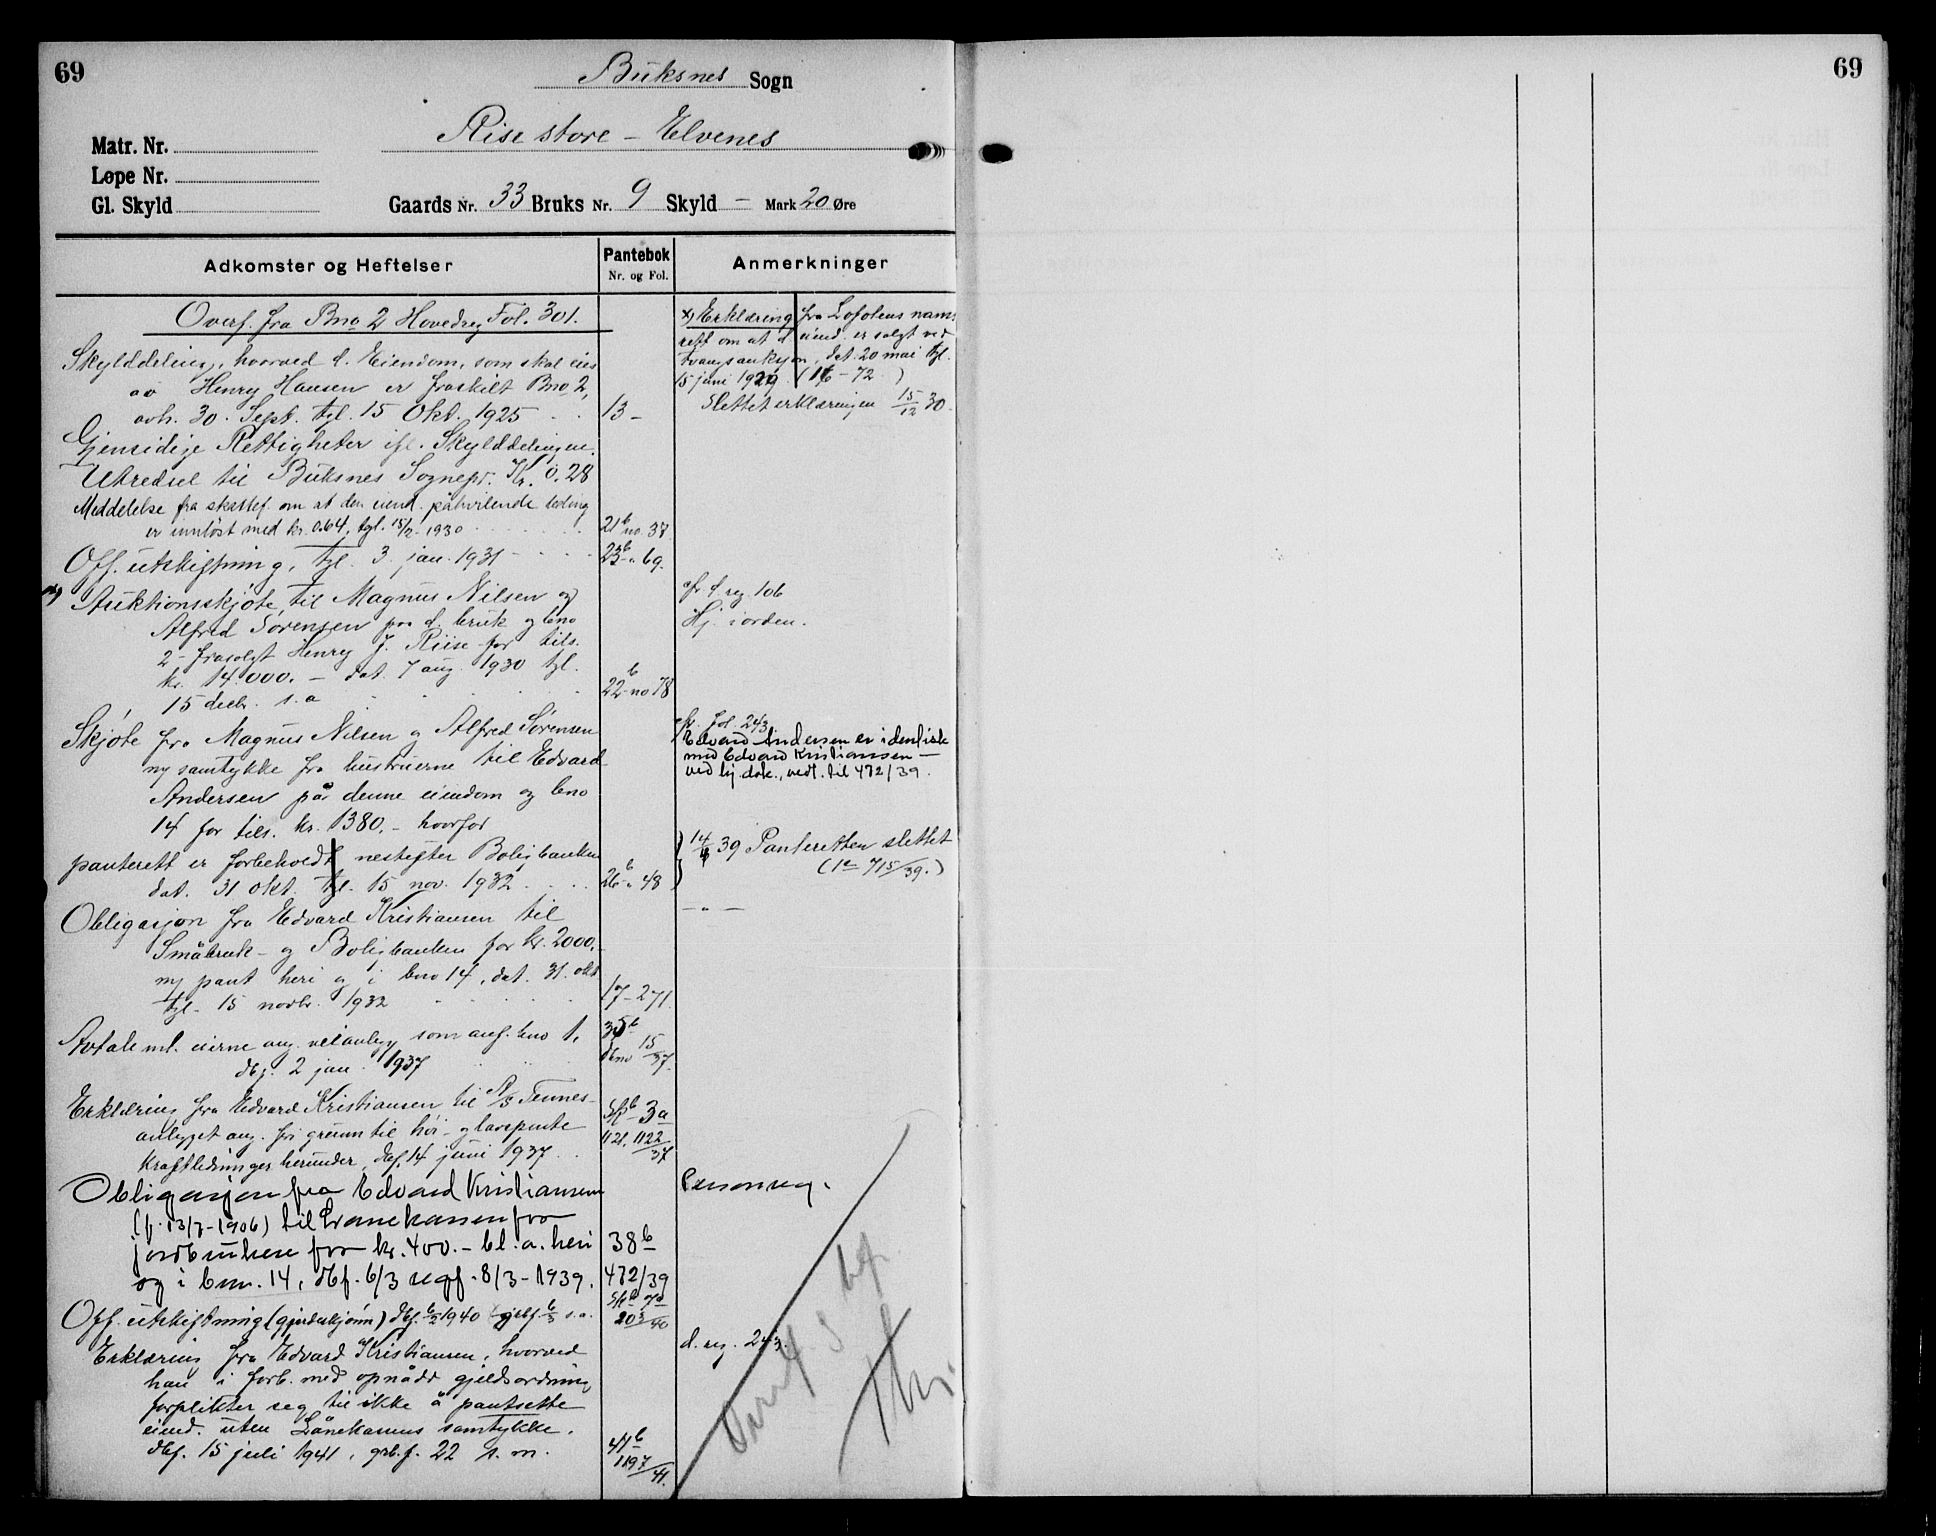 69
Buksnes Sogn
Riise store - Elvenes
Matr. Nr.
Løpe Nr.
Gl. Skyld
Gaards Nr. 33 Bruks Nr. 9 Skyld – Mark 20 Øre
Adkomster og Heftelser
Pantebok
Nr. og Fol.
Anmerkninger
Overf. fra Bno 2 Hovedreg Fol. 301.
Skylddeling, hvorved d. Eiendom, som skal eies
av Henry Hansen er fraskilt Bno 2,
avh. 30. Sept. tgl. 15 Okt. 1925 13 –
Gjensidige Rettigheter ifl. Skylddelingen.
Utredsel til Buksnes Sognepr. Kr. 0.28
Meddelelse fra skattef. om at den eiend. påhvilende leding
er innløst med kr. 0.64, tgl. 15/2 - 1930 21b no. 37
Off. utskiftning, tgl. 3 jan. 1931 23b - " 69.
x) Auktionsskjøte til Magnus Nilsen og
Alfred Sørensen paa d. bruk og bno
2 - frasolgt Henry J. Riise for tils.
kr. 14.000. – dat. 7 aug. 1930 tgl.
15 decbr. s.a. 22b - no 78
Skjøte fra Magnus Nilsen og Alfred Sørensen
m/ samtykke fra hustruerne til Edvard
Andersen på denne eiendom og bno
14 for tils. kr. 1380. – hvorfor
panterett er forbeholdt nestefter Boligbanken
dat. 31 okt. tgl. 15 nov. 1932 26b - " 48
Obligasjon fra Edvard Kristiansen til
Småbruk- og Boligbanken for kr. 2000. –
m/ pant heri og i bno 14, dat. 31. okt
tgl. 15 novbr. 1932 17 - 271.
Avtale ml. eierne ang. veianlegg som anf. bno 1,
dbf. 2 jan. 1937 35b
dbno 15/37.
Erklæring fra Edvard Kristiansen til A/S Tennes-
anlegget ang. fri grunn til høi- og lavspente
kraftledninger herunder, dbf. 14 juni 1937 Spb - 3a
1121, 1122/37
Obligasjon fra Edvard Kristiansen
(f. 13/7 - 1906) til Lånekassen for
jordbrukere for kr. 400. – bl. a. heri
og i bnr. 14, dbf. 6/3 regf. 8/3 - 1939. 38b
472/39
Off. utskiftning (gjerdeskjønn) dbf. 6/2 1940 grbf. 6/3 s.a. 203/40
Erklæring fra Edvard Kristiansen, hvorved
han i forb. med opnådd gjeldsordning
forplikter seg til ikke å pantsette
eiend. uten Lånekassens samtykke.
dbf. 15 juli 1941, grb.f. 22 s. m. 41b
1197/41.
x) Erklæring fra Lofotens nams
rett om at d eiend. er solgt ved
tvangsauksjon, dat. 20 mai tgl.
15 juni 1929. (16 - 72.)
Slettet erklæringen 15/12 30.
cfr d. reg. 106
Hj. i orden.
cfr. fol. 243
Edvard Andersen er identisk
med Edvard Kristiansen –
ved hj. dok., vedl. til 472/39.
14/8 39 Panteretten slettet
(1a 715/39.)
– " –
Personreg.
d. reg. 243.
69